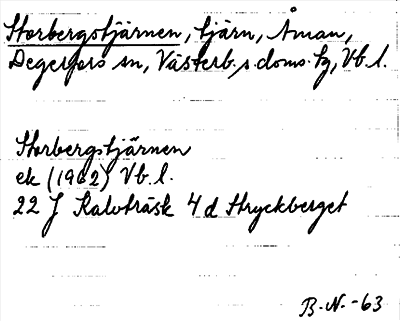 Storbergstjärnen, tjärn, Åman,
Degerfors sn, Västerb. s. doms. tg, Vb. l.
Storbergstjärnen
ek (1962) Vb. l.
22 J Kalvträsk 4 d Stryckberget
B. N. -63